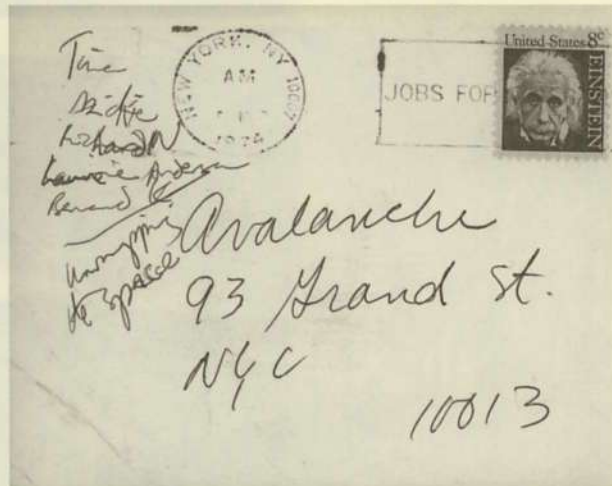 Time
Dickie
Richard N
Laurie Anderson
Bernard
the space
NEW YORK, NY 10007
AM
1974
JOBS FOR
United States 8c
EINSTEIN
Avalanche
93 Grand St.
NYC
10013